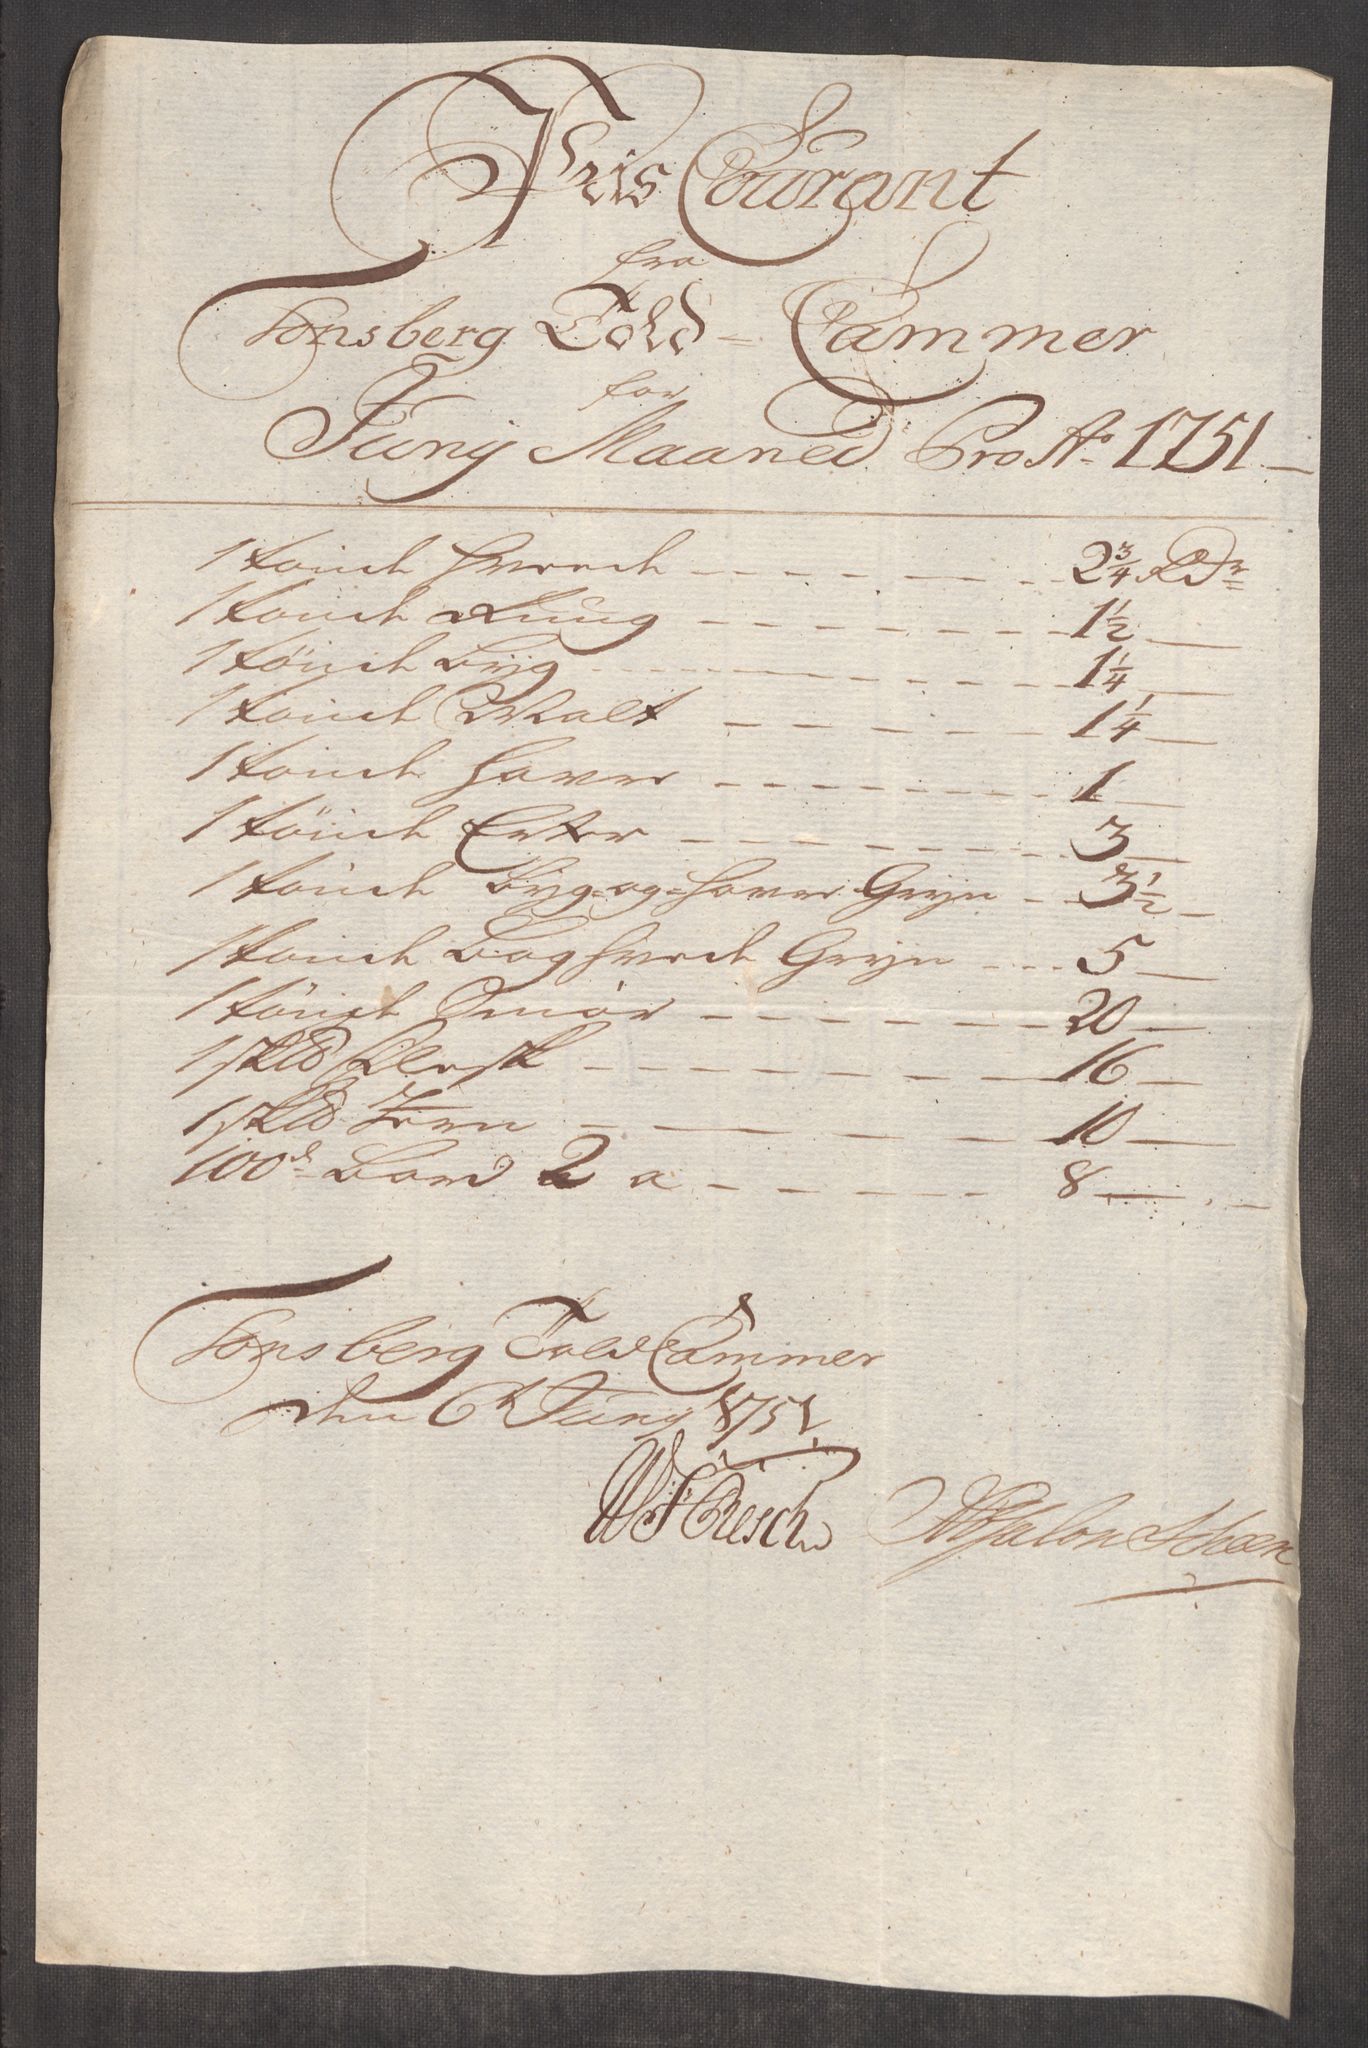 Pris Courant
fra
Tonsberg Told=Cammer
for
Junij Maaned Pro Ao 1751
1 tönde Hvede 2 3/4 RDr
1 tönde Rug 1 1/2
1 tönde Byg 1 1/4
1 tönde Malt 1 1/4
1 tönde Havre 1
1 tönde Erter 3
1 tönde Byg=og=Havre Gryn 3 1/2
1 tönde Boghvede Gryn 5
1 tönde Smör 20
1 sk℔ Flesk 16
1 sk℔ Jern 10
100d Bord 2 a 8
Tonsberg Told Cammer
den 6t Junij 1751
Resch Absalon